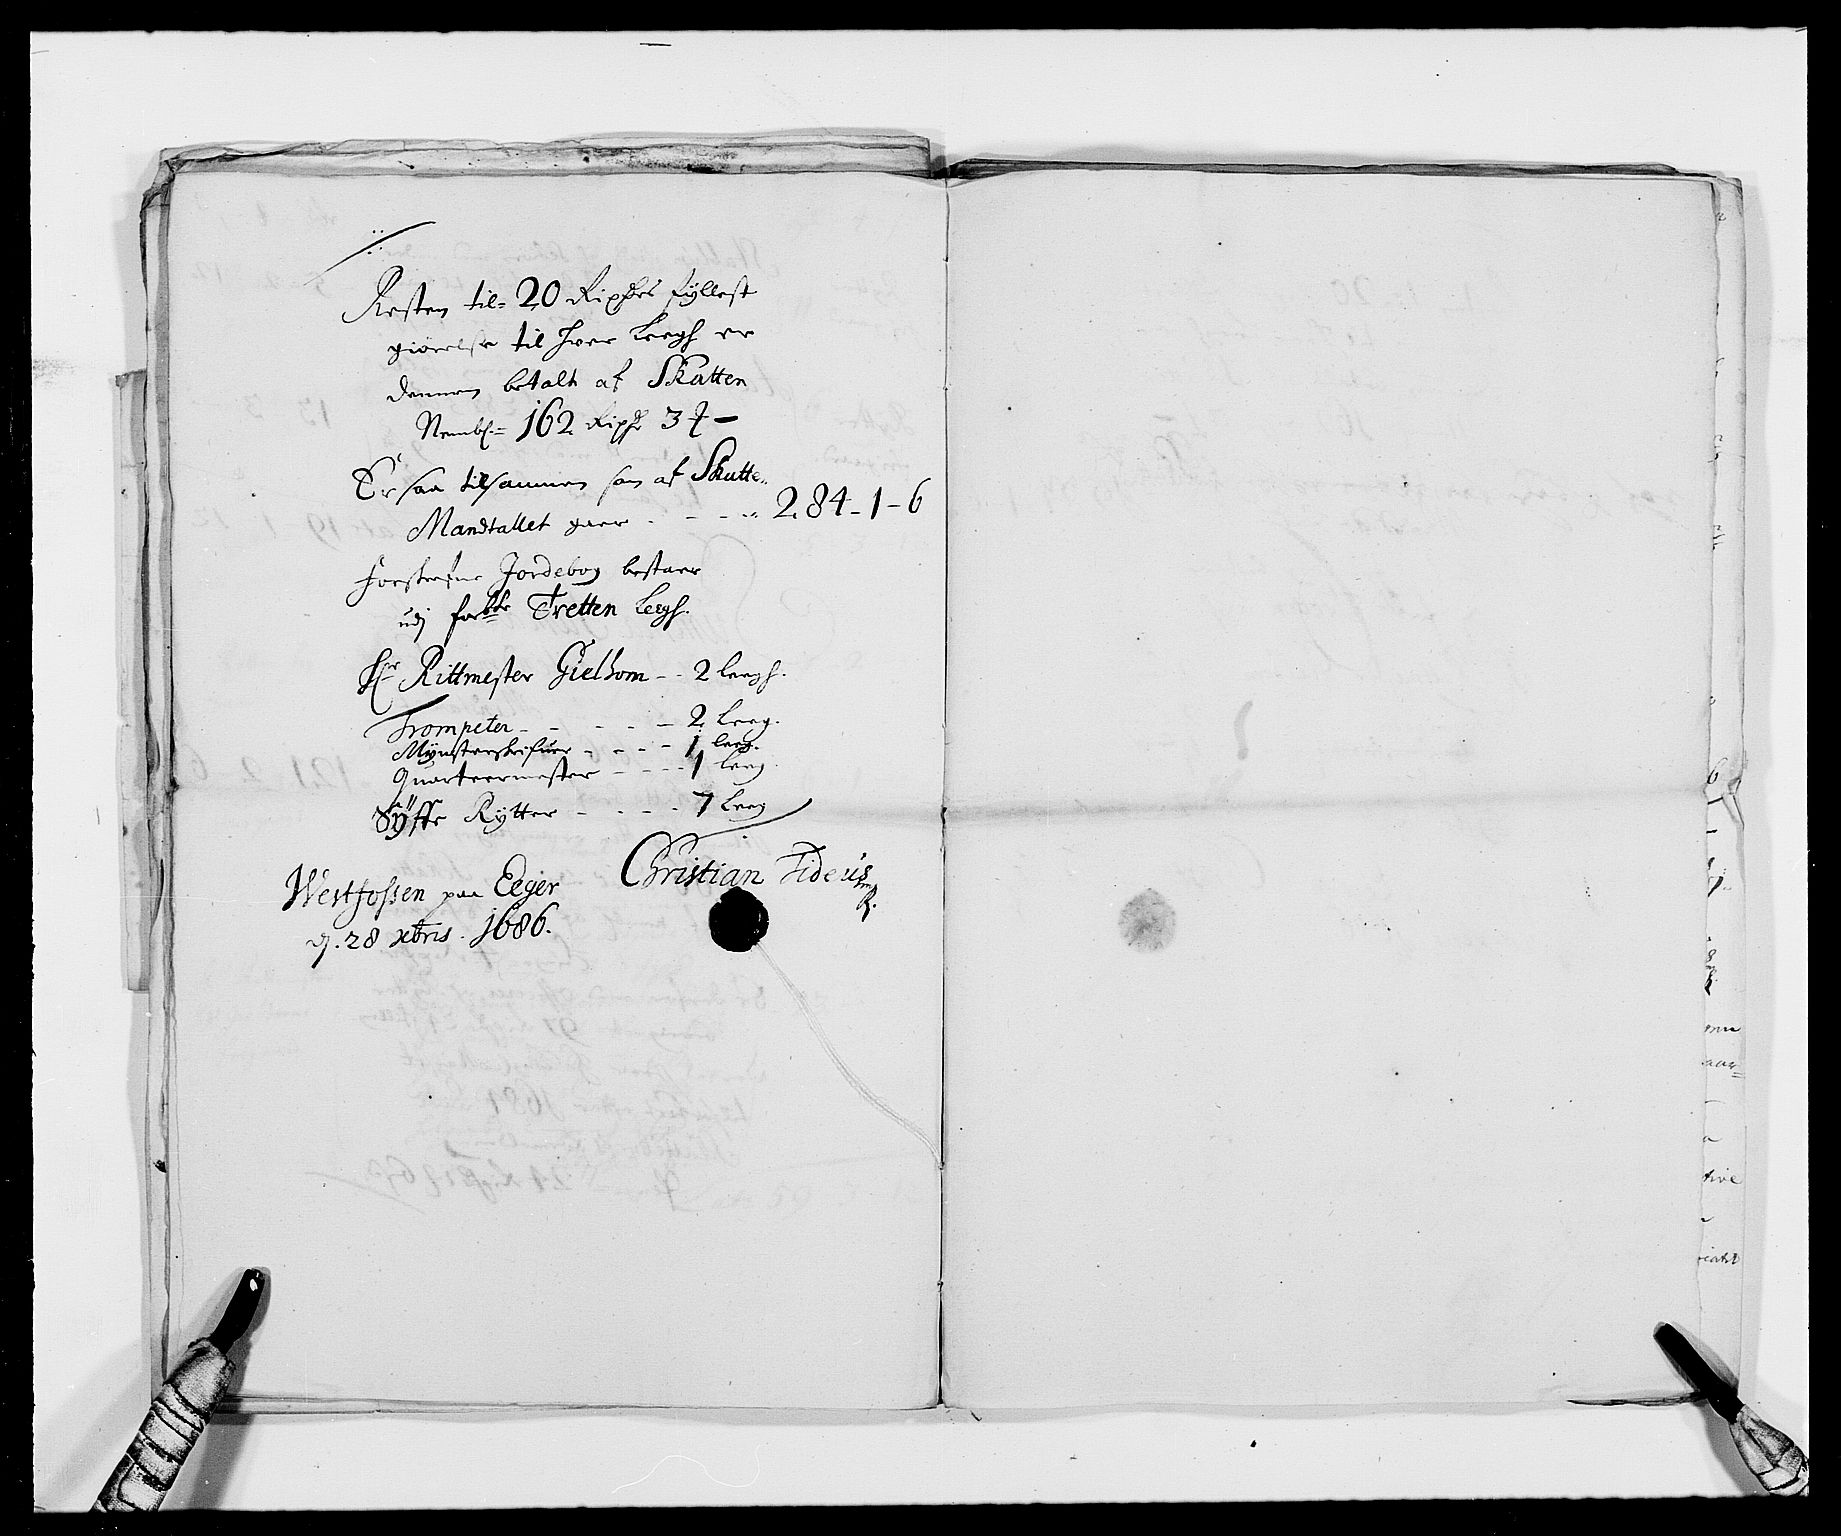 Resten til= 20 Rixdrs fyllest
giørelse til hver Leegh er
dennem betalt af Skatten
Nembl:= 162 Rixdr 3 ₰ —
Er saa tilsammen som af Skatte-
Mandtallet gaar - - - 284 - 1 - 6
Forskrefne Jordebog bestaar
udj for^bte Tretten Leegh.
Hr Rittmester Gielhom - - 2 Leegh.
Trompeter - - - - - 2 Leeg.
Mynsterskrifuer - - - - 1 Leeg.
Quarteermester - - - - 1 Leeg.
Syff Rytter - - - - 7 Leeg
Westfossen paa Eeger
d. 28 xbris. 1686.
Christian Fideus